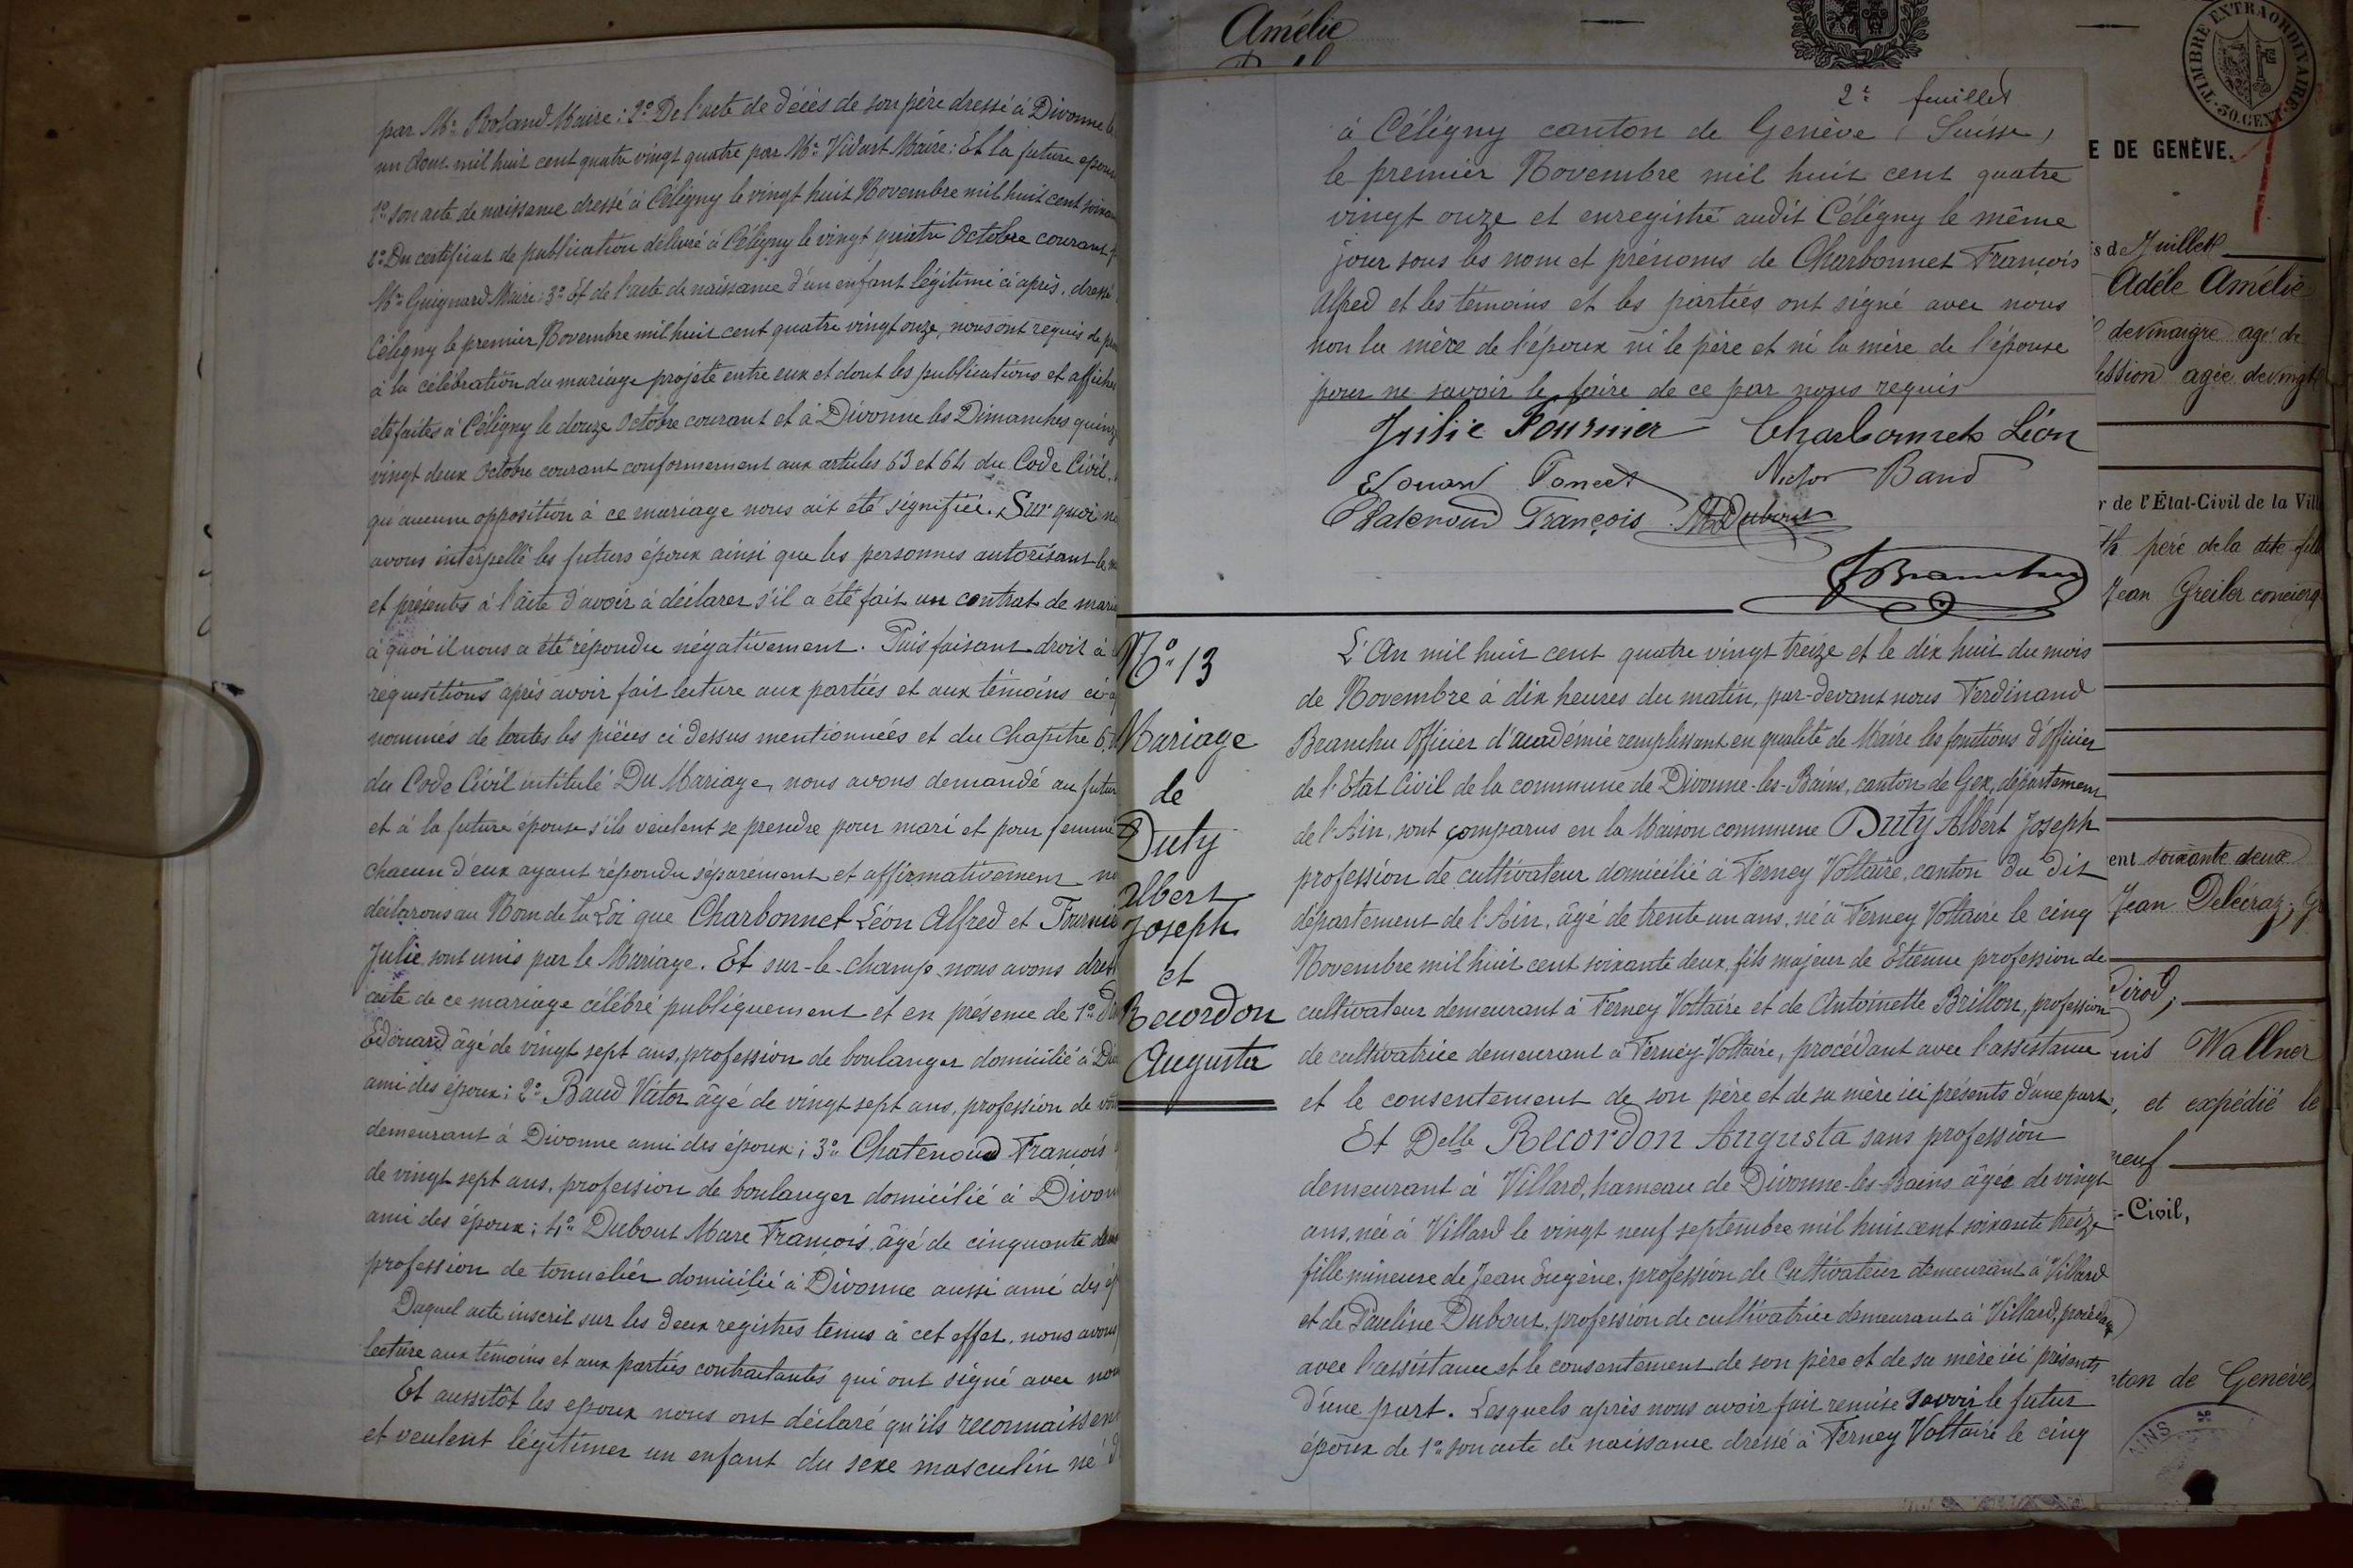 par Mr. Roland Maire ; 2° De l'acte de décès de son père dressé à Divonne le
un Aout mil huit cent quatre vingt quatre par Mr. Vidart Maire : Et la future épouse
1° son acte de naissance dressé à Céligny le vingt huit Novembre mil huit cent soixan
2° Du certificat de publication délivré à Céligny le vingt quatre Octobre courant p
Mr. Guignard Maire : 3° Et de l'acte de naissance d'un enfant légitimé ci après, dressé
Céligny le premier Novembre mil huit cent quatre vingt onze, nous ont requis de pro
à la célébration du mariage projeté entre eux et dont les publications et affiches
été faites à Céligny le douze Octobre courant et à Divonne les Dimanches quinze
vingt deux Octobre courant conformement aux articles 63 et 64 du Code Civil,
qu'aucune opposition à ce mariage nous ait été signifiée. Sur quoi no
avons interpellé les futurs époux ainsi que les personnes autorisant le m
et présents à l'acte d'avoir à déclarer s'il a été fait un contrat de maria
à quoi il nous a été répondu négativement. Puis faisant droit à
réquisitions après avoir fait lecture aux parties et aux témoins ci-a
nommés de toutes les pièces ci dessus mentionnées et du Chapitre 6,
du Code Civil intitulé Du Mariage, nous avons demandé au futur
et à la future épouse s'ils veulent se prendre pour mari et pour femme
chacun d'eux ayant répondu séparément et affirmativement no
déclarons au Nom de la Loi que Charbonnet Léon Alfred et Fournie
Julie sont unis par le Mariage. Et sur-le-champ nous avons dress
acte de ce mariage célébré publiquement et en présence de 1°
Edouard âgé de vingt sept ans, profession de boulanger domicilié à Div
ami des époux ; 2° Baud Victor âgé de vingt sept ans, profession de
demeurant à Divonne ami des époux ; 3° Chatenoud François
de vingt sept ans, profession de boulanger domicilié à Divonn
ami des époux ; 4° Dubout Marc François, âgé de cinquante
profession de tonnelier domicilié à Divonne aussi ami des ép
Duquel acte inscrit sur les deux registres tenus à cet effet, nous avons
lecture aux témoins et aux parties contractantes qui ont signé avec nou
Et aussitôt les epoux nous ont déclaré qu'ils reconnaissen
et veulent légitimer un enfant du sexe masculin né
2e feuillet
à Céligny canton de Genève (Suisse)
le premier Novembre mil huit cent quatre
vingt onze et enregistré audit Céligny le même
jour sous les nom et prénoms de Charbonnet François
Alfred et les témoins et les parties ont signé avec nous
non la mère de l'époux ni le père et ni la mère de l'épouse
pour ne savoir le faire de ce par nous requis
Julie Fournier Charbonnet Léon
Edouard Poncet Victor Baud
Chatenoud François M Dubout
F Branchu
N° 13
Mariage
de
Duty
Albert
Joseph
et
Recordon
Augusta
L'An mil huit cent quatre vingt treize et le dix huit du mois
de Novembre à dix heures du matin, par-devant nous Ferdinand
Branchu Officier d'académie remplissant en qualité de Maire les fonctions d'Officier
de l'Etat Civil de la commune de Divonne-les-Bains, canton de Gex, département
de l'Ain, sont comparus en la Maison commune Duty Albert Joseph
profession de cultivateur domicilié à Ferney Voltaire, canton du dit
département de l'Ain, âgé de trente un ans, né à Ferney Voltaire le cinq
Novembre mil huit cent soixante deux, fils majeur de Etienne profession de
cultivateur demeurant à Ferney Voltaire et de Antoinette Brillon, profession
de cultivatrice demeurant à Ferney-Voltaire, procédant avec l'assistance
et le consentement de son père et de sa mère ici présents d'une part
Et Delle Recordon Augusta sans profession
demeurant à Villard, hameau de Divonne-les-Bains âgée de vingt
ans, née à Villard le vingt neuf septembre mil huit cent soixante treize
fille mineure de Jean Eugène, profession de Cultivateur demeurant à Villard
et de Pauline Dubout, profession de cultivatrice demeurant à Villard, procédant
avec l'assistance et le consentement de son père et de sa mère ici présents
d'une part. Lesquels après nous avoir fait remise savoir le futur
époux de 1° son acte de naissance dressé à Ferney Voltaire le cinq
Amélie
TIMBRE EXTRAORDINAIRE
30. CENT.
E DE GENÈVE.
s de Juillet
Adèle Amélie
de vinaigre agé de
ession agée de vingt
r de l'État-Civil de la Vill
père de la dite fill
Jean Greiler concierg
ent soixante deux
Jean Delécraz, G
Pirod,
uis Wallner
, et expédié le
neuf
-Civil,
ton de Genève,
AINS